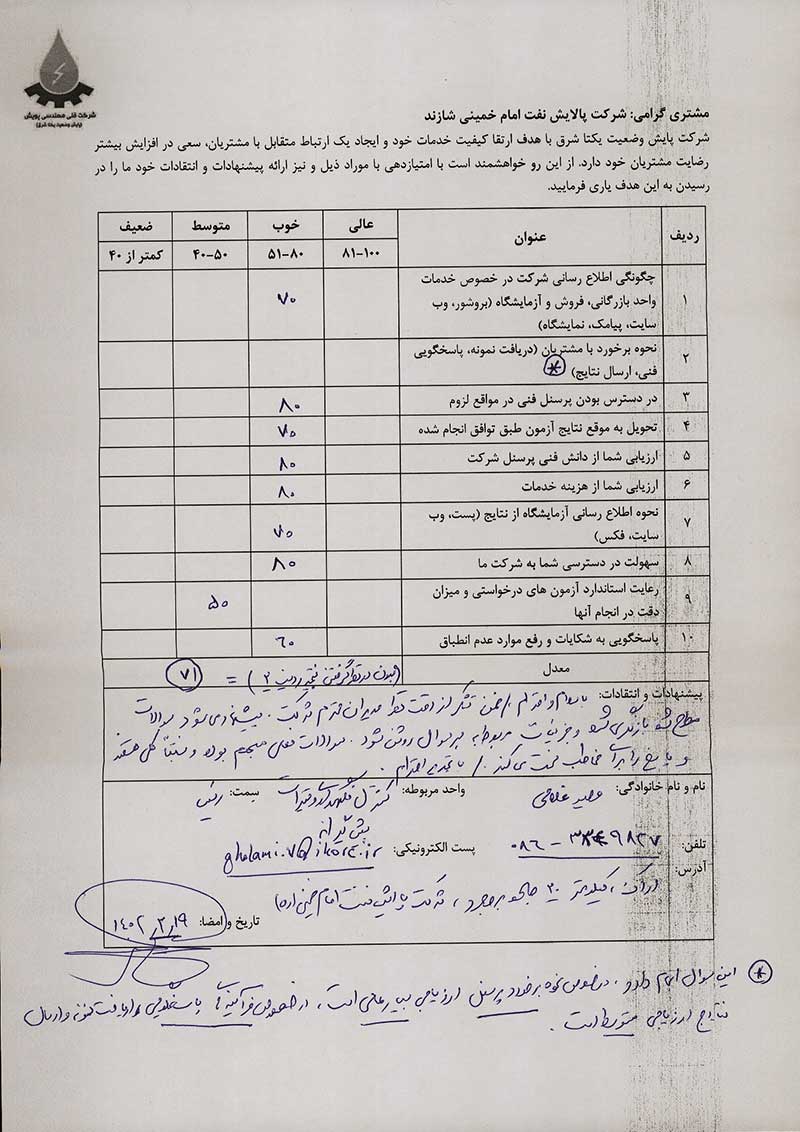 شرکت فنی مهندسی پویش
(پایش وضعیت یکتا شرق)
مشتری گرامی: شرکت پالایش نفت امام خمینی شازند
شرکت پایش وضعیت یکتا شرق با هدف ارتقا کیفیت خدمات خود و ایجاد یک ارتباط متقابل با مشتریان، سعی در افزایش بیشتر
رضایت مشتریان خود دارد. از این رو خواهشمند است با امتیازدهی با موراد ذیل و نیز ارائه پیشنهادات و انتقادات خود ما را در
رسیدن به این هدف یاری فرمایید.
ردیف عنوان عالی خوب متوسط ضعیف
۸۱-۱۰۰ ۵۱-۸۰ ۴۰-۵۰ کمتر از ۴۰
چگونگی اطلاع رسانی شرکت در خصوص خدمات
۱ واحد بازرگانی، فروش و آزمایشگاه (بروشور، وب ۷۰
سایت، پیامک، نمایشگاه)
نحوه برخورد با مشتریان (دریافت نمونه، پاسخگویی
۲ فنی، ارسال نتایج) *
۳ در دسترس بودن پرسنل فنی در مواقع لزوم ۸۰
۴ تحویل به موقع نتایج آزمون طبق توافق انجام شده ۷۰
۵ ارزیابی شما از دانش فنی پرسنل شرکت ۸۰
۶ ارزیابی شما از هزینه خدمات ۸۰
نحوه اطلاع رسانی آزمایشگاه از نتایج (پست، وب
۷ سایت، فکس) ۷۰
۸ سهولت در دسترسی شما به شرکت ما ۸۰
رعایت استاندارد آزمون های درخواستی و میزان
۹ دقت در انجام آنها ۵۰
۱۰ پاسخگویی به شکایات و رفع موارد عدم انطباق ۶۰
معدل (بدون در نظر گرفتن نتیجه ردیف ۲) = ۷۱
پیشنهادات و انتقادات: با سلام و احترام / ضمن تشکر از دقت نظر مدیران محترم شرکت. پیشنهاد می شود سوالات
مطرح شده بازنگری شود و جزئیات مربوطه به هر سوال روشن شود. سوالات فعلی مبهم بوده و نسبتاً کلی هستند
و پاسخ را برای مخاطب سخت می کند. / با تجدید احترام.
نام و نام خانوادگی: غلامی واحد مربوطه: کنترل سمت: رئیس
پیشگیرانه
تلفن: ۰۸۶ - پست الکترونیکی: gholami.v@ikorc.ir
آدرس: اراک، کیلومتر ۲۰ جاده بروجرد، شرکت پالایش نفت امام خمینی (ره)
تاریخ و امضا: ۱۴۰۲/۲/۱۹
* این سوال ابهام دارد. در خصوص نحوه برخورد پرسنل ارزیابی بسیار عالی است، در خصوص فرآیند های پاسخگویی دریافت نمونه و ارسال
نتایج ارزیابی متوسط است.